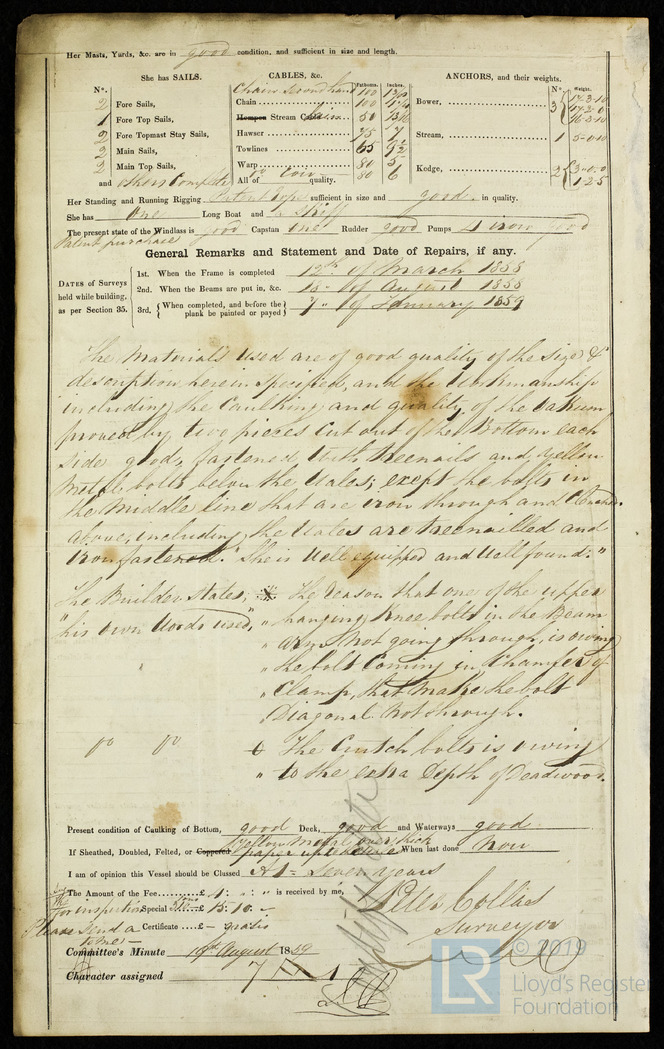 Her Masts, Yards, &c. are in good condition, and sufficient in size and length.
She has SAILS.
CABLES, &c.
ANCHORS, and their weights.
N°.
Fathoms.
Inches.
N°.
Weight.
2 Fore Sails,
1 Fore Top Sails,
2 Fore Topmast Stay Sails,
2 Main Sails,
2 Main Top Sails,
and others Complete
Chain Second hand 100
Chain 100
Hempen Stream Cable Chain 50
Hawser 75 7
Towlines 65
Warp 80 5
All of quality. 80 6
Bower, 3 17-3-10
17-2-0
16-3-10
Stream, 1 5-0-10
Kedge, 2 3-0-0
1-2-5
Her Standing and Running Rigging Patent rope sufficient in size and good in quality.
She has One Long Boat and 1 Skiff
The present state of the Windlass is good Capstan One Rudder good Pumps 4 iron good
Patent purchase
General Remarks and Statement and Date of Repairs, if any.
DATES of Surveys held while building, as per Section 35.
1st. When the Frame is completed 12th of March 1858
2nd. When the Beams are put in, &c. of August 1858
3rd. When completed, and before the plank be painted or payed 7" of January 1859
The Materials used are of good quality of the size &
description herein Specified, and the Workmanship
including the Caulking and quality of the Oakum
proved by two pieces Cut out of the Bottom each
side good, fastened with treenails and Yellow
Metal bolts below the Wales; exept the bolts in
the Middle line that are iron through and Clenched.
above, including the Wales are treenailled and
Iron fastened. She is Well equipped and Well found."
The Builder States; The reason that one of the upper
"his own Words used" " hanging Knee bolts in the Beam
" arm Not going through, is owing
" the bolt Coming in Chamfer of
" Clamp, that Make the bolt
" Diagonal Not through.
Do Do The Crutch bolts is owing
" to the extra Depth of Deadwood.
Present condition of Caulking of Bottom, good Deck, good and Waterways good
If Sheathed, Doubled, Felted, or Coppered Yellow Metal over thick paper When last done Now
I am of opinion this Vessel should be Classed A 1 = Seven years
The Amount of the Fee £ 4: " : " is received by me,
for inspection Special £ 15.10.-
Please send a Certificate £- gratis
to me -
Peter Collas
Surveyor
Committee's Minute August 1859
Character assigned 7 A 1
LR
© 2019
Lloyd's Register
Foundation